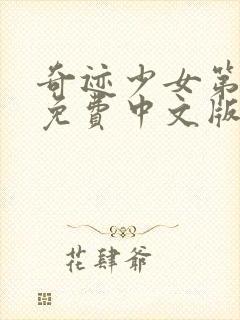 奇迹少女第
免費中文版
花肆爷